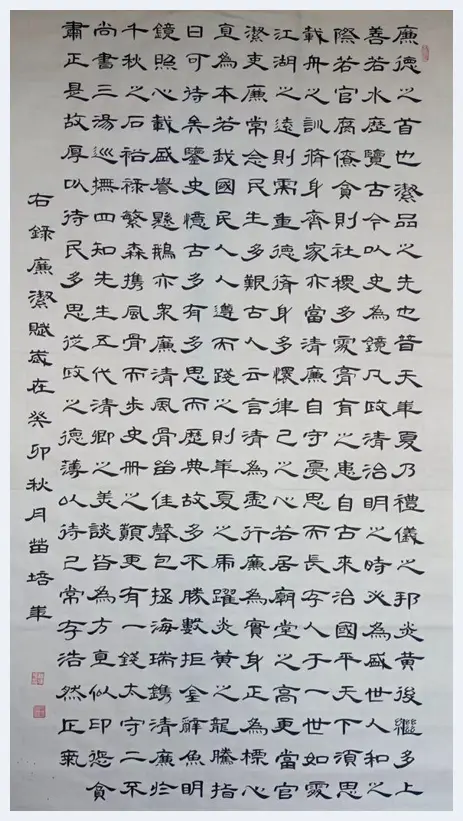 廉德之首也潔品之先也普天華夏乃禮儀之邦炎黃後繼多上
善若水歷覽古今以史為鏡凡政清治明之時必為盛世人和之
際若官腐僚貪則社稷多霧膏肓之患自古來治國平天下須思
載舟之訓脩身齊家亦當清廉自守憂思而長存人于一世如霧
江湖之遠則需重德脩身多懷律己之心若居廟堂之高更當官
潔吏廉常念民生多艱古人云言清為虛行廉為實身正為標心
真為本若我國民人人遵而踐之則華夏之虎躍炎黃之龍騰指
日可待矣鑒史憶古多有多思而歷典故多不勝數拒金辭魚明
鏡照心載盛譽懸鵝亦眾廉清風骨留佳聲包拯海瑞鐫清廉於
千秋之石裕祿繁森攜風骨而步史冊之顛更有一錢太守二不
尚書三湯巡撫四知先生五代清卿之美談皆為方直似印懲貪
肅正是故厚以待民多思從政之德薄以待己常存浩然正氣
右錄廉潔賦歲在癸卯秋月苗培華